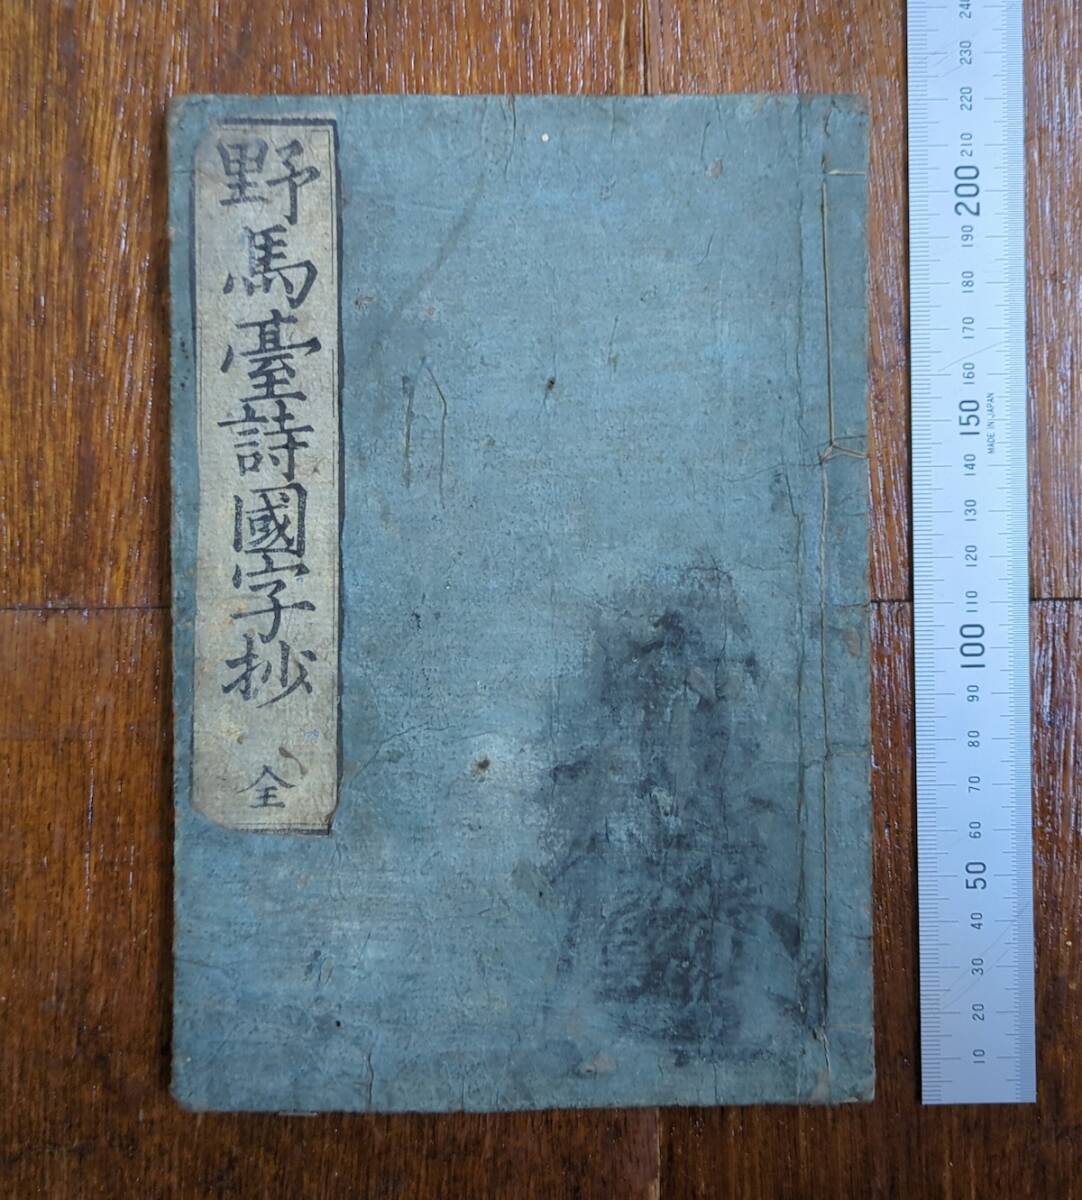 野馬臺詩國字抄
全
240
230
220
210
200
190
180
170
160
150
MADE IN JAPAN
140
130
120
110
100
90
80
70
60
50
40
30
20
10